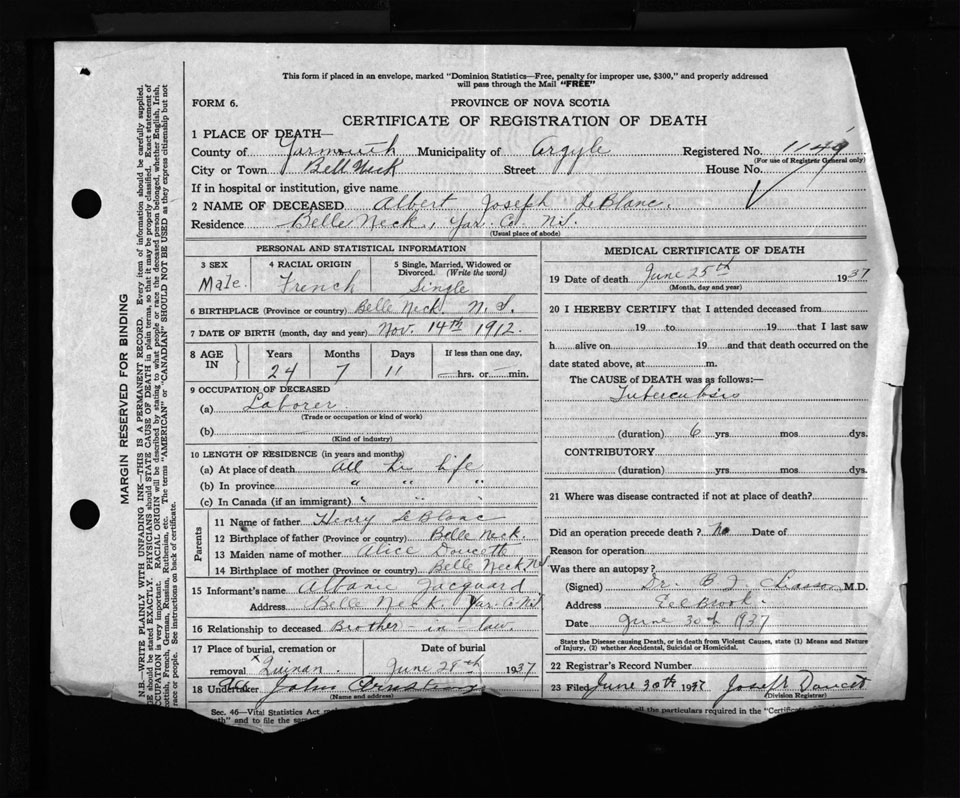 This form if placed in an envelope, marked "Dominion Statistics—Free, penalty for improper use, $300," and properly addressed
will pass through the Mail "FREE"
FORM 6.
PROVINCE OF NOVA SCOTIA
CERTIFICATE OF REGISTRATION OF DEATH
1 PLACE OF DEATH—
County of Yarmouth Municipality of Argyle Registered No. 1149
(For use of Registrar General only)
City or Town Bell Neck Street House No.
If in hospital or institution, give name
2 NAME OF DECEASED Albert Joseph LeBlanc.
Residence Belle Neck, Yar. Co. N.S.
(Usual place of abode)
PERSONAL AND STATISTICAL INFORMATION
3 SEX 4 RACIAL ORIGIN 5 Single, Married, Widowed or
Divorced. (Write the word)
Male. French Single
6 BIRTHPLACE (Province or country) Belle Neck. N.S.
7 DATE OF BIRTH (month, day and year) Nov. 14th 1912.
8 AGE IN Years Months Days If less than one day,
24 7 11 hrs. or min.
9 OCCUPATION OF DECEASED
(a) Laborer
(Trade or occupation or kind of work)
(b)
(Kind of industry)
10 LENGTH OF RESIDENCE (in years and months)
(a) At place of death all his life
(b) In province " " "
(c) In Canada (if an immigrant) " " "
Parents
11 Name of father Henry LeBlanc
12 Birthplace of father (Province or country) Belle Neck.
13 Maiden name of mother Alice Doucette
14 Birthplace of mother (Province or country) Belle Neck NS
15 Informant's name Albanie Jacquard
Address Belle Neck. Yar. Co. N.S.
16 Relationship to deceased Brother-in-law.
17 Place of burial, cremation or Date of burial
removal Quinan. June 28th 1937
18 Undertaker John
(Name and address)
Sec. 46—Vital Statistics Act
MEDICAL CERTIFICATE OF DEATH
19 Date of death June 25th 1937
(Month, day and year)
20 I HEREBY CERTIFY that I attended deceased from
19 to 19 that I last saw
h alive on 19 and that death occurred on the
date stated above, at m.
The CAUSE OF DEATH was as follows:—
Tuberculosis
(duration) 6 yrs mos dys.
CONTRIBUTORY
(duration) yrs. mos. dys.
21 Where was disease contracted if not at place of death?
Did an operation precede death? No Date of
Reason for operation
Was there an autopsy?
(Signed) Dr. B J Chiasson M.D.
Address Eel Brook.
Date June 30th 1937
State the Disease causing Death, or in death from Violent Causes, state (1) Means and Nature
of Injury, (2) whether Accidental, Suicidal or Homicidal.
22 Registrar's Record Number
23 Filed June 30th 1937 Joseph Doucet
(Division Registrar)
all the particulars required in the "Certificate
MARGIN RESERVED FOR BINDING
N.B.—WRITE PLAINLY WITH UNFADING INK—THIS IS A PERMANENT RECORD. Every item of information should be carefully supplied.
AGE should be stated EXACTLY. PHYSICIANS should STATE CAUSE OF DEATH in plain terms, so that it may be properly classified. Exact statement of
OCCUPATION is very important. RACIAL ORIGIN will be described by stating to what people or race the deceased person belonged, whether English, Irish,
Scottish, French, German, Russian, Ruthenian, etc. The terms "AMERICAN" or "CANADIAN" SHOULD NOT BE USED as they express citizenship but not
race or people. See instructions on back of certificate.